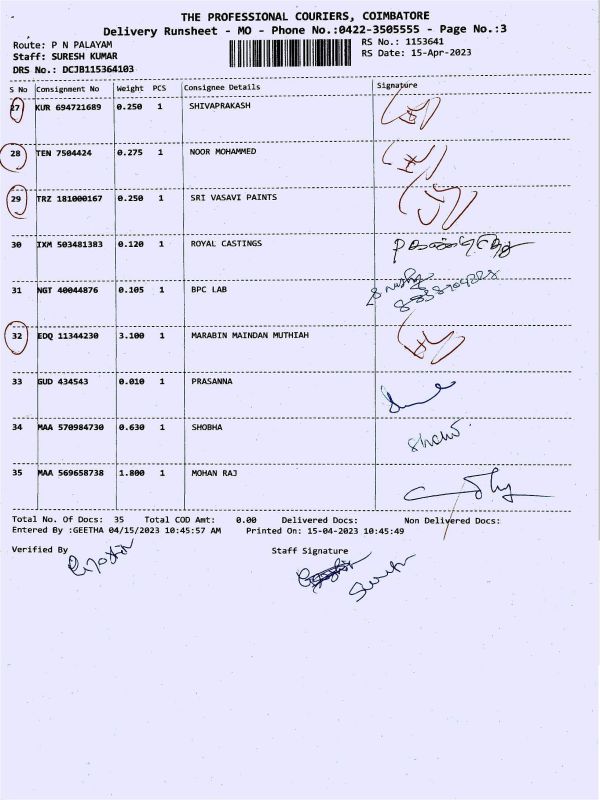 THE PROFESSIONAL COURIERS, COIMBATORE
Delivery Runsheet - MO - Phone No.:0422-3505555 - Page No.:3
Route: P N PALAYAM
Staff: SURESH KUMAR
DRS No.: DCJB115364103
RS No.: 1153641
RS Date: 15-Apr-2023
S No Consignment No Weight PCS Consignee Details Signature
27 KUR 694721689 0.250 1 SHIVAPRAKASH
28 TEN 7504424 0.275 1 NOOR MOHAMMED
29 TRZ 181000167 0.250 1 SRI VASAVI PAINTS
30 IXM 503481383 0.120 1 ROYAL CASTINGS
31 NGT 40044876 0.105 1 BPC LAB
32 EDQ 11344230 3.100 1 MARABIN MAINDAN MUTHIAH
33 GUD 434543 0.010 1 PRASANNA
34 MAA 570984730 0.630 1 SHOBHA
35 MAA 569658738 1.800 1 MOHAN RAJ
Total No. Of Docs: 35 Total COD Amt: 0.00 Delivered Docs: Non Delivered Docs:
Entered By :GEETHA 04/15/2023 10:45:57 AM Printed On: 15-04-2023 10:45:49
Verified By Staff Signature